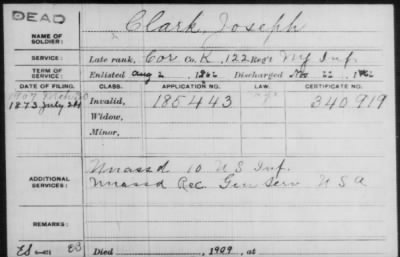 DEAD
NAME OF SOLDIER: Clark, Joseph
SERVICE: Late rank, Cor Co. K, 122 Reg't Ny Inf.
TERM OF SERVICE: Enlisted Aug 2, 1862 Discharged 22, 1862
DATE OF FILING. CLASS. APPLICATION NO. CERTIFICATE NO.
1907
1873 July 24 Invalid, 185443 340919
Widow,
Minor,
ADDITIONAL SERVICES: Unassd 10 U S Inf.
Unassd Rec. Gen Serv U S A
REMARKS:
ES EB Died , 1909 , at